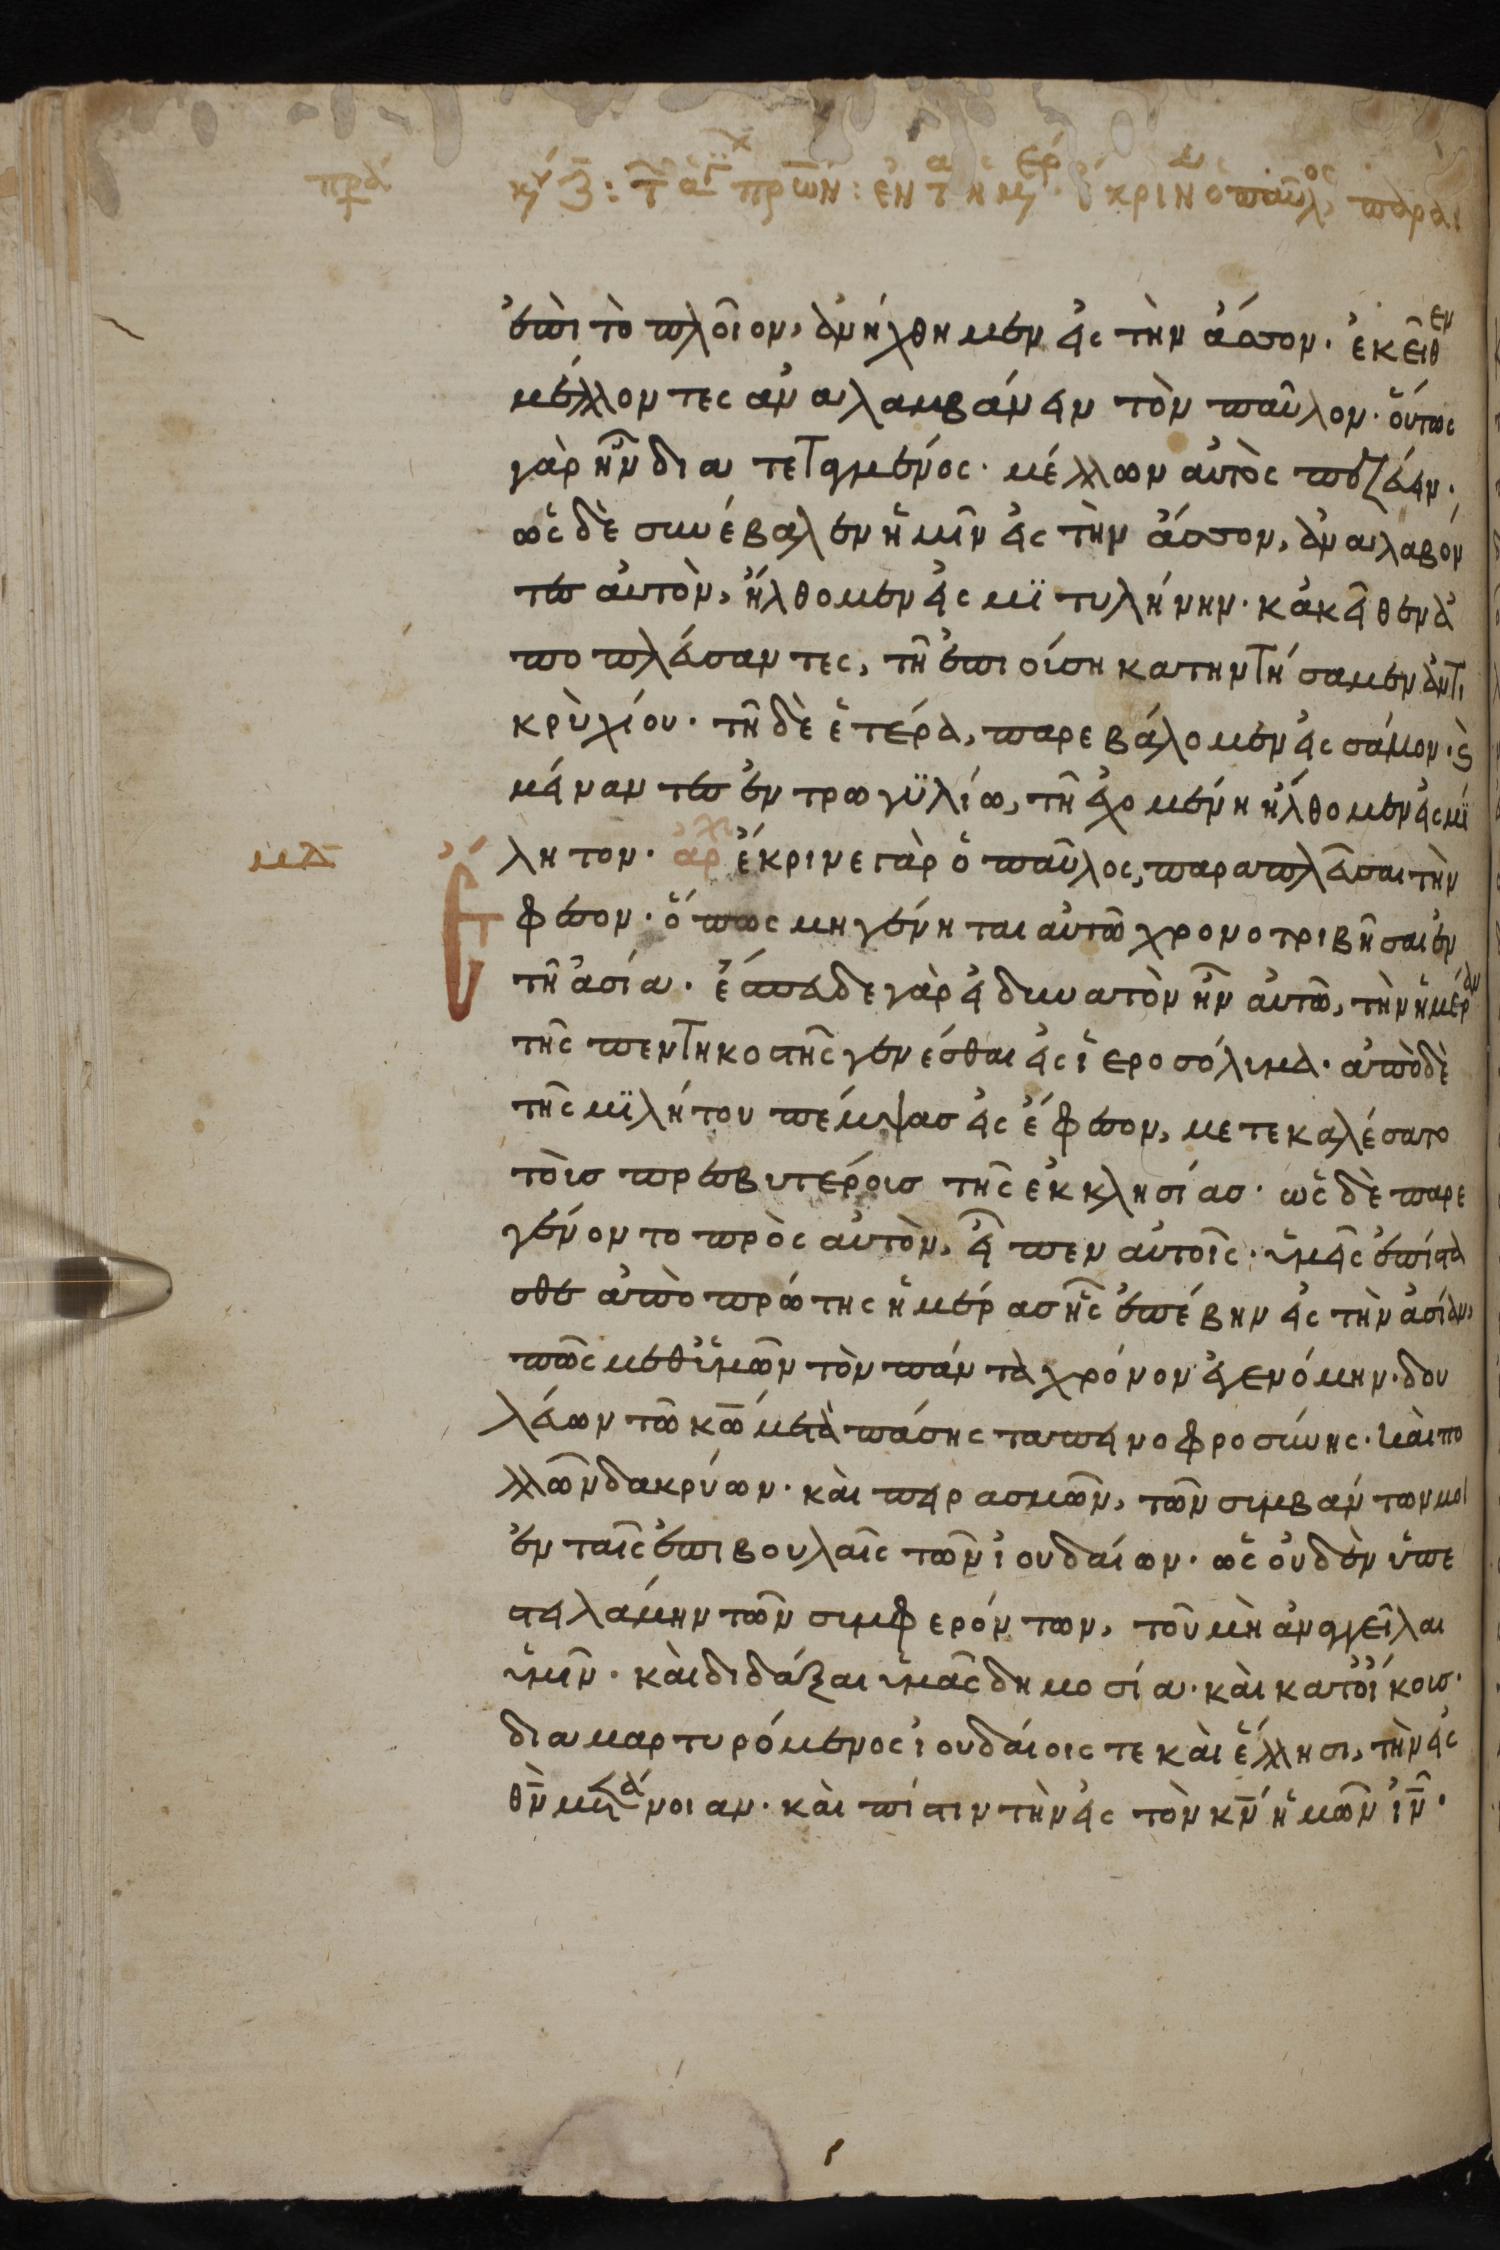 πρά κυ ζ: τ ἁγ πρων: ἐν τ ἡμέρ ἔκρινεν ὁ παῦλος παρα
ἐπὶ τὸ πλοῖον, ἀνήχθημεν εἰς τὴν ἄσσον· ἐκεῖθεν
μέλλοντες ἀναλαμβάνειν τὸν παῦλον· οὕτως
γὰρ ἦν διατεταγμένος· μέλλων αὐτὸς πεζεύειν·
ὡς δὲ συνέβαλεν ἡμῖν εἰς τὴν ἄσσον, ἀναλαβόν
τες αὐτὸν, ἤλθομεν εἰς μϊτυλήνην· κἀκεῖθεν ἀ
ποπλεύσαντες, τῆ ἐπιούση κατηντήσαμεν ἀντι
κρὺ χίου· τῆ δὲ ἑτέρα, παρεβάλομεν εἰς σάμον· καὶ
μείναντες ἐν τρωγϋλίω, τῆ ἐχομένη ἤλθομεν εἰς μί
μδ λητον· ἀρχ ἔκρινε γὰρ ὁ παῦλος, παραπλεῦσαι τὴν
ἔφεσον· ὅπως μὴ γένηται αὐτῶ χρονοτριβῆσαι ἐν
τῆ ἀσία· ἔσπευδε γὰρ εἰ δυνατὸν ἦν αὐτῶ, τὴν ἡμέραν
τῆς πεντηκοστῆς γενέσθαι εἰς ἱεροσόλυμα· ἀπὸ δὲ
τῆς μϊλήτου πέμψας εἰς ἔφεσον, μετεκαλέσατο
τοὺσ πρεσβυτέρουσ τῆς ἐκκλησίασ· ὡς δὲ παρε
γένοντο πρὸς αὐτὸν, εἶπεν αὐτοῖς· ὑμεῖς ἐπίστα
σθε ἀπὸ πρώτης ἡμέρασ ἧς ἐπέβην εἰς τὴν ἀσίαν,
πῶς μεθ' ὑμῶν τὸν πάντα χρόνον ἐγενόμην· δου
λεύων τῶ κω μετὰ πάσης ταπεινοφροσύνης· καὶ πο
λλῶν δακρύων· καὶ πειρασμῶν, τῶν συμβάντων μοι
ἐν ταῖς ἐπιβουλαῖς τῶν ἰουδαίων· ὡς οὐδὲν ὑπε
στειλάμην τῶν συμφερόντων, τοῦ μὴ ἀναγγεῖλαι
ὑμῖν· καὶ διδάξαι ὑμᾶς δημοσία· καὶ κατ' οἴκουσ·
διαμαρτυρόμενος ἰουδαίοις τε καὶ ἕλλησι, τὴν εἰς
θν μετάνοιαν· καὶ πίστιν τὴν εἰς τὸν κν ἡμῶν ιν·